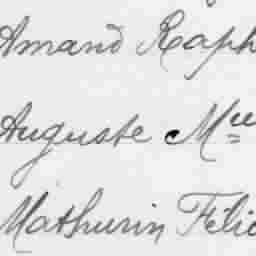 Amand Raph
Auguste Mu
Mathurin Félic